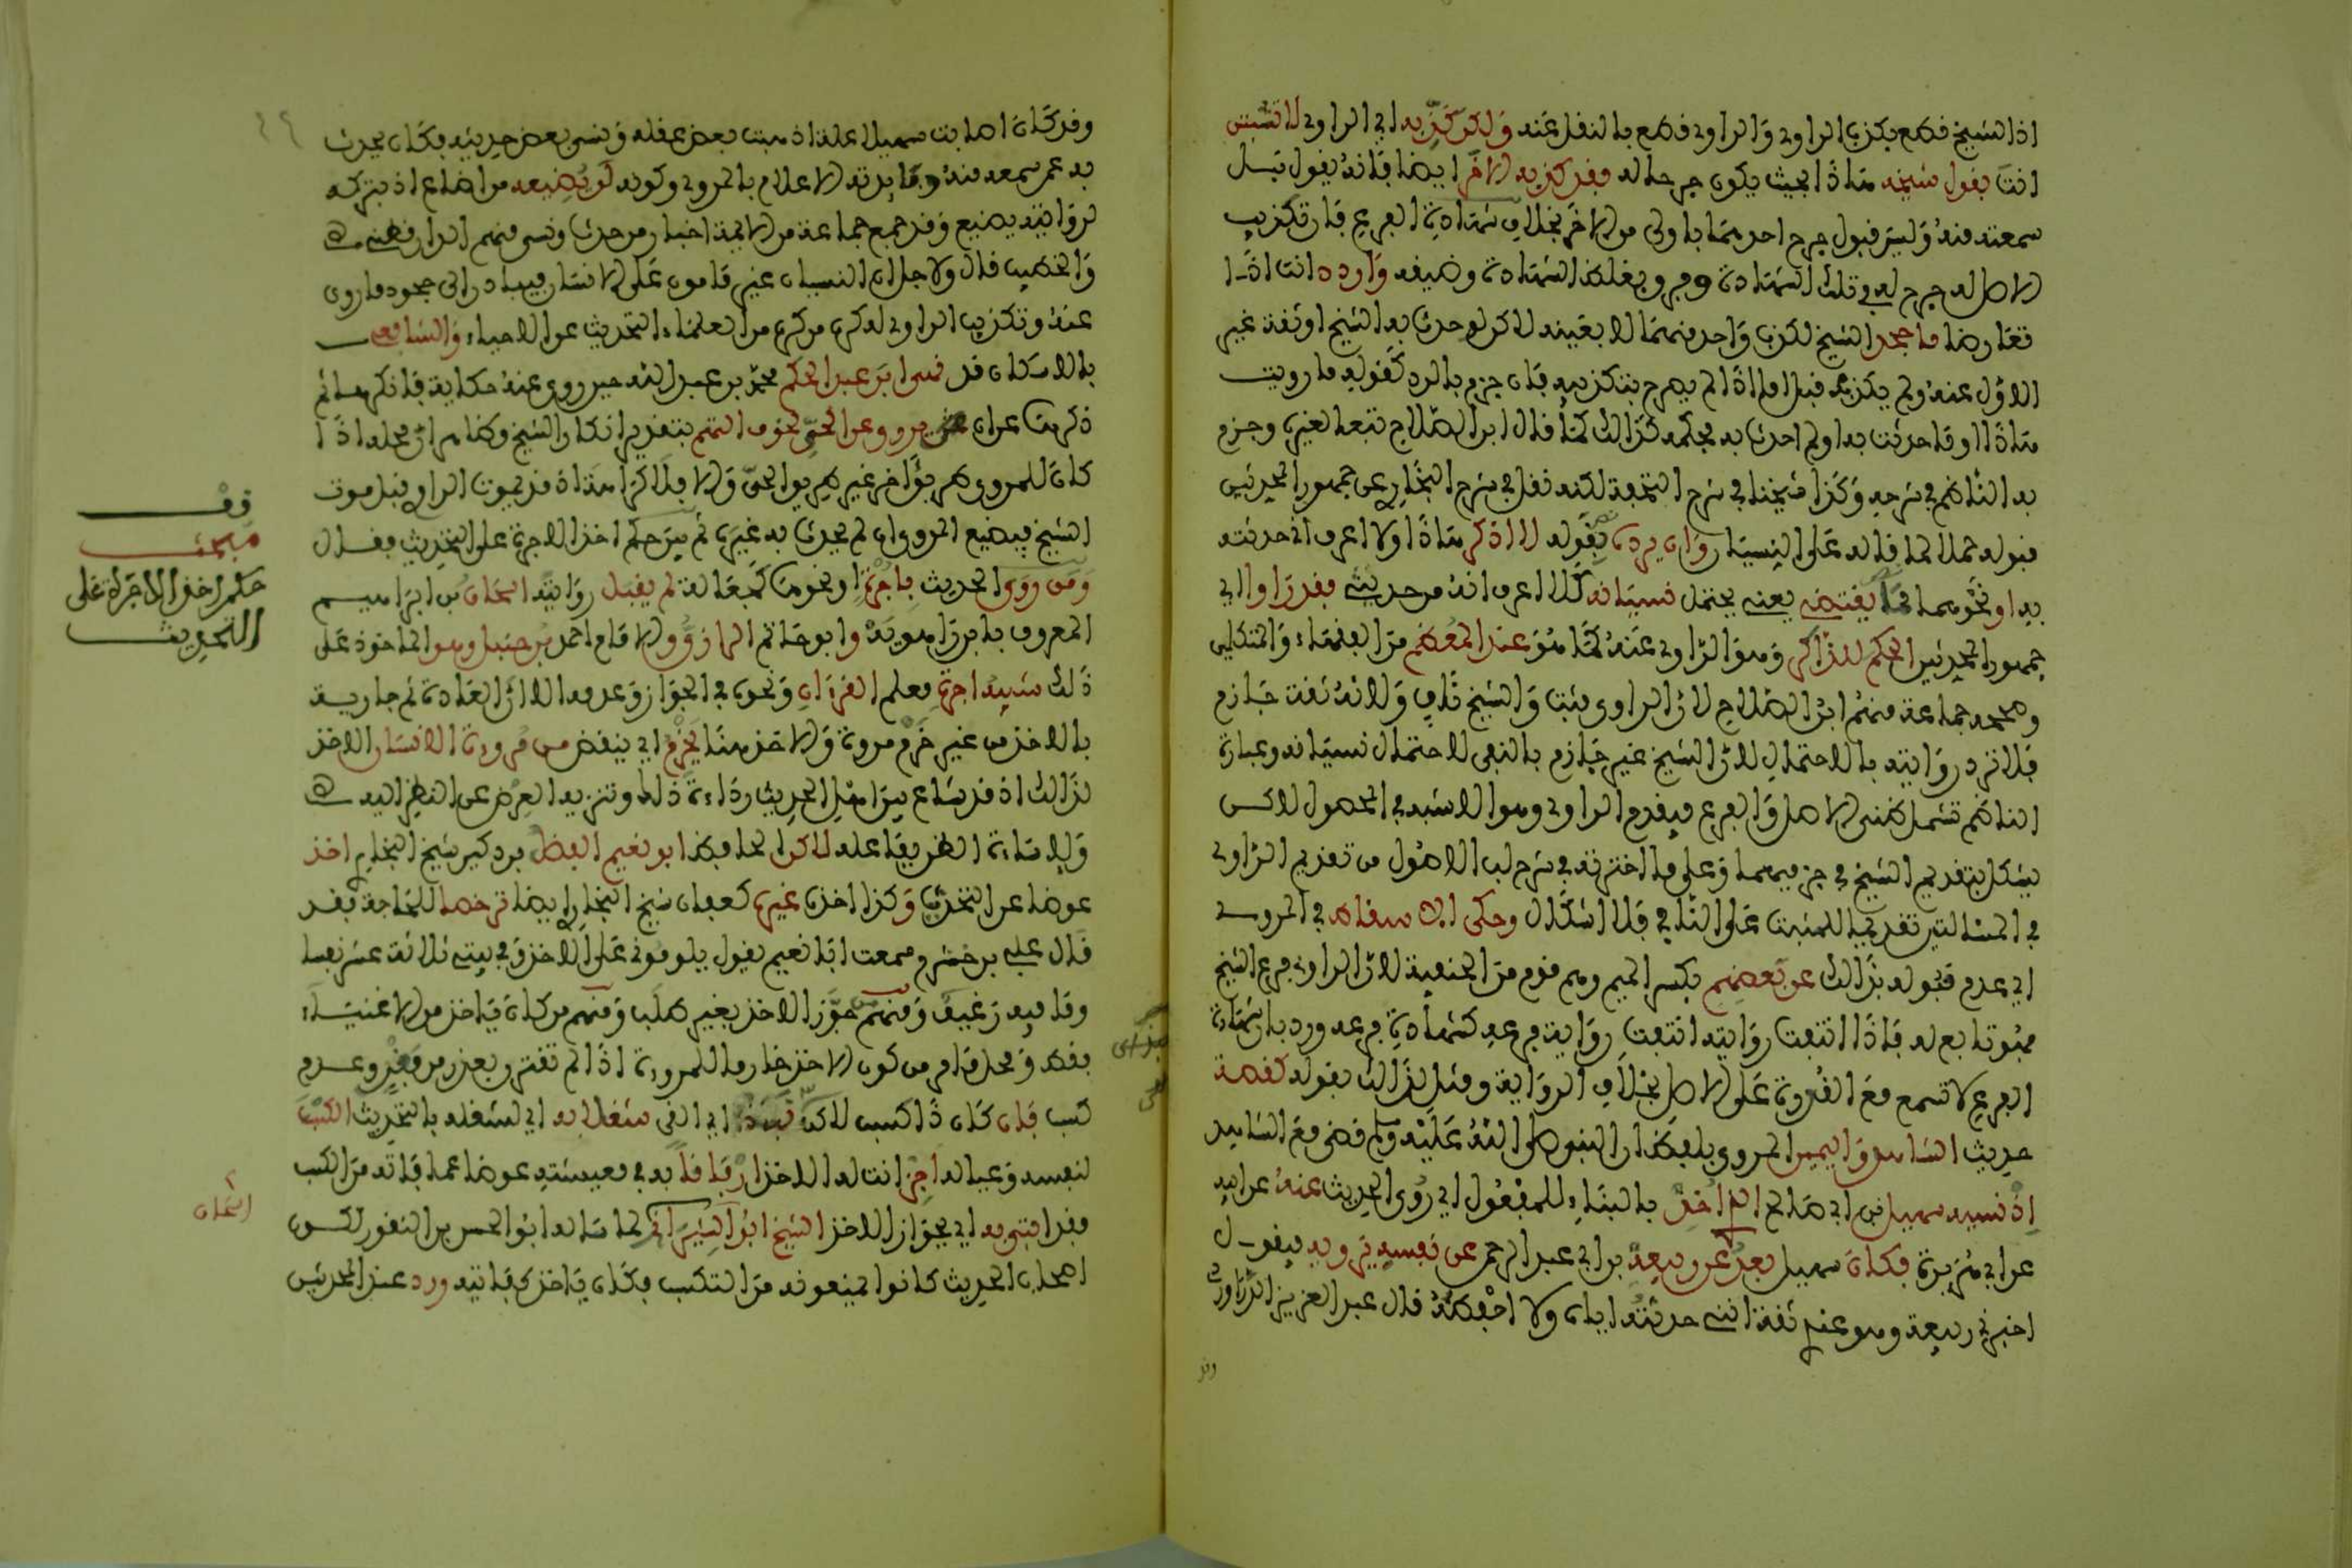 اذ الشيخ قطع بكذب الراوي والراوي قطع بالنقل عنه ولكن كذبه اي الراوي لا تثبتن
انت بقول شيخه هذا بحيث يكون جرحا له فقد كذبه الآخر ايضا فانه يقول بل
سمعته منه وليس قبول جرح احدهما باولى من الآخر بخلاف شهادة الفرع فان تكذيب
الاصل له جرح له في تلك الشهادة واردد انت اذا
تعارضا ما جحد الشيخ لكذب واحد منهما لا بعينه لاكن لو حدث به الشيخ او ثقة غير
الاول عنه ولم يكذبه قبل اما اذا لم يصرح بتكذيبه فان جزم بالرد كقوله ما رويت
هذا او ما حدثت به او لم احدث به فحكمه كذالك كما قال ابن الصلاح تبعا لغيره وجزم
به الناظم في شرحه وكذا شيخنا في شرح النخبة لكنه نقل في شرح البخاري عن جمهور المحدثين
قبوله حملا لما قاله على النسيان وان يرده بقوله لا اذكر هذا او لا اعرف اني حدثته
به او نحوهما مما يقتضي يعني يحتمل نسيانه كلا اعرف انه من حديثي فقد راوا اي
جمهور المحدثين الحكم للذاكر وهو الراوي عنه كما هو عند المعظم من الفقهاء والمتكلمين
وصححه جماعة منهم ابن الصلاح لان الراوي مثبت والشيخ ناف ولانه ثقة جازم
فلا ترد روايته بالاحتمال لان الشيخ غير جازم بالنفي لاحتمال نسيانه وعبارة
الناظم تشمل ظني الاصل والفرع فيقدم الراوي وهو الاشبه في المحصول لاكن
يشكل بتقديم الشيخ في جزميهما وعلى ما اخترته في شرح لب الاصول من تقديم الراوي
في المسالتين تقديما للمثبت على النافي فلا اشكال وحكى الاسقاط في المروي
اي عدم قبوله بذالك عن بعضهم بكسر الميم وهم قوم من الحنفية لان الراوي فرع الشيخ
فثبوته تابع له فاذا انتفت روايته انتفت رواية فرعه كشهادة فرعه ورد بان شهادة
الفرع لا تسمع مع القدرة على الاصل بخلاف الرواية ومثل لذالك بقوله كقصة
حديث الشاهد واليمين المروي بلفظ ان النبي صلى الله عليه وسلم قضى مع الشاهد
اذ نسيه سهيل بن ابي صالح الذي اخذ بالبناء للمفعول اي روي الحديث عنه عن ابيه
عن ابي هريرة فكان سهيل بعد عن ربيعة بن ابي عبد الرحمن عن نفسه يرويه فيقول
اخبرني ربيعة وهو عندي ثقة انني حدثته اياه ولا احفظه قال عبد العزيز الدراوردي
وقد
وقد كان اصابت سهيلا علة اذهبت بعض عقله ونسي بعض حديثه فكان يحدث
به عمن سمعه منه وفائدته الاعلام بالمروي وكونه لم يضيعه من اضاع اذ بتركه
لروايته يضيع وقد جمع جماعة من الائمة اخبار من حدث ونسي منهم الدارقطني
والخطيب قال ولاجل ان النسيان غير مامون على الانسان فيبادر الى جحود ما روى
عنه وتكذيب الراوي له كره من كره من العلماء التحديث عن الاحياء والشافعي
بالاسكان قد نهى ابن عبد الحكم محمد بن عبد الله حين روى عنه حكاية فانكرها ثم
ذكرها عن ان يروي عن الحي لخوف التهم بتقدير انكار الشيخ وظاهر ان محله اذا
كان للمروي طريق اخر غير طريق الحي والا فلا كراهة اذ قد يموت الراوي قبل موت
الشيخ فيضيع المروي ان لم يحدث به غيره ثم بين حكم اخذ الاجرة على التحديث فقال
ومن روى الحديث باجرة او نحوها كجعالة لم يقبل روايته اسحاق بن ابراهيم
المعروف بابن راهويه وابو حاتم الرازي والامام احمد بن حنبل وهو الماخوذ على
ذلك شبيه اجرة معلم القرءان ونحوه في الجواز وعدمه الا ان العادة ثم جارية
بالاخذ من غير خرم مروة والاخذ هنا يخرم اي ينقص من مروءة الانسان الاخذ
لذالك اذ قد شاع بين اهل الحديث رداءة ذلك وتنزيه العرض عن النظر اليه
ولاساءة الظن بفاعله لاكن الحافظ ابو نعيم الفضل بن دكين شيخ البخاري اخذ
عوضا عن التحديث وكذا اخذه غيره كعفان شيخ البخاري ايضا ترخصا للحاجة فقد
قال علي بن خشرم سمعت ابا نعيم يقول يلومونني على الاخذ وفي بيتي ثلاثة عشر نفسا
وما فيه رغيف ومنهم من جوز الاخذ بغير طلب ومنهم من كان ياخذ من الاغنياء
فقط ومحل ما مر من كون الاخذ خارما للمروءة اذا لم تقترن بعذر من فقر وعدم
كسب فان كان ذا كسب لاكن نبذه اي القى شغلا به اي لشغله بالتحديث الكسب
لنفسه وعياله اجز انت له الاخذ ارفاقا به في معيشته عوضا عما فاته من الكسب
فقد افتى به اي بجواز الاخذ الشيخ ابو اسحاق الشيرازي لما ساله ابو الحسين بن النقور لكون
اصحاب الحديث كانوا يمنعونه من التكسب فكان ياخذ كفايته ورد عند المحدثين
قف
مبحث
حكم اخذ الاجرة على
التحديث
اسحاق